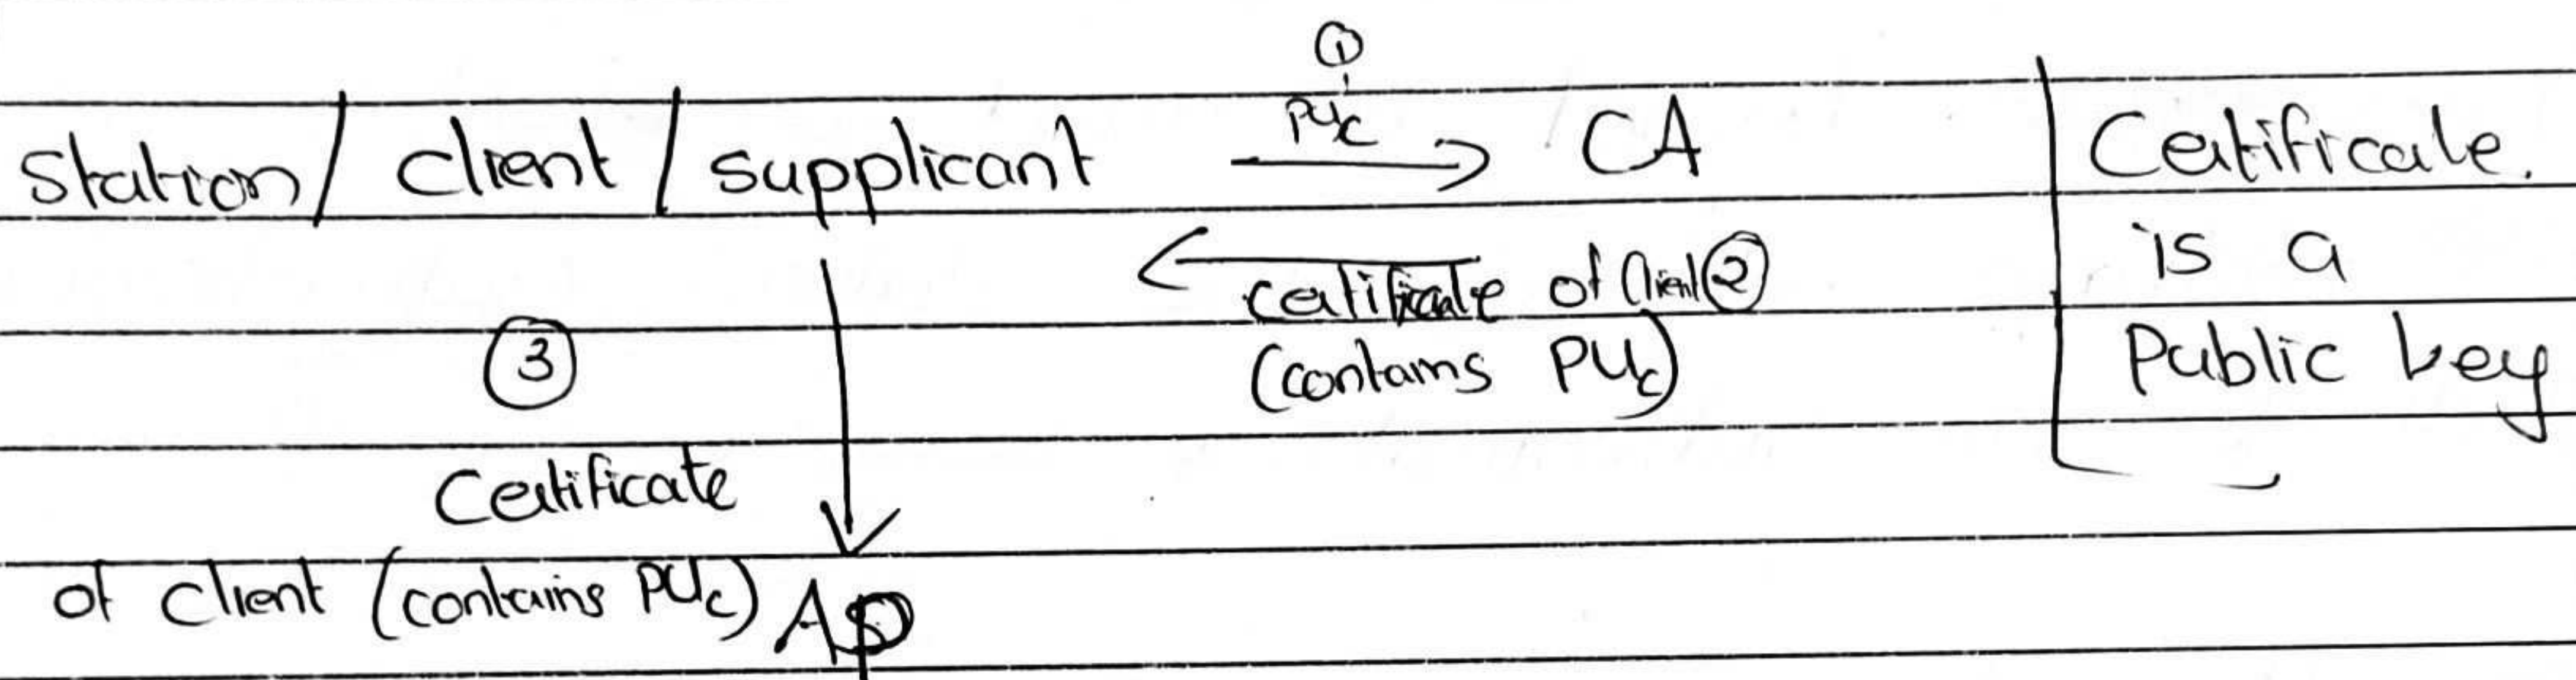 ①
PUc
Station / client / supplicant → CA
Certificate.
is a
Public key
← certificate of Client ②
(contains PUc)
③
Certificate
of client (contains PUc) AP